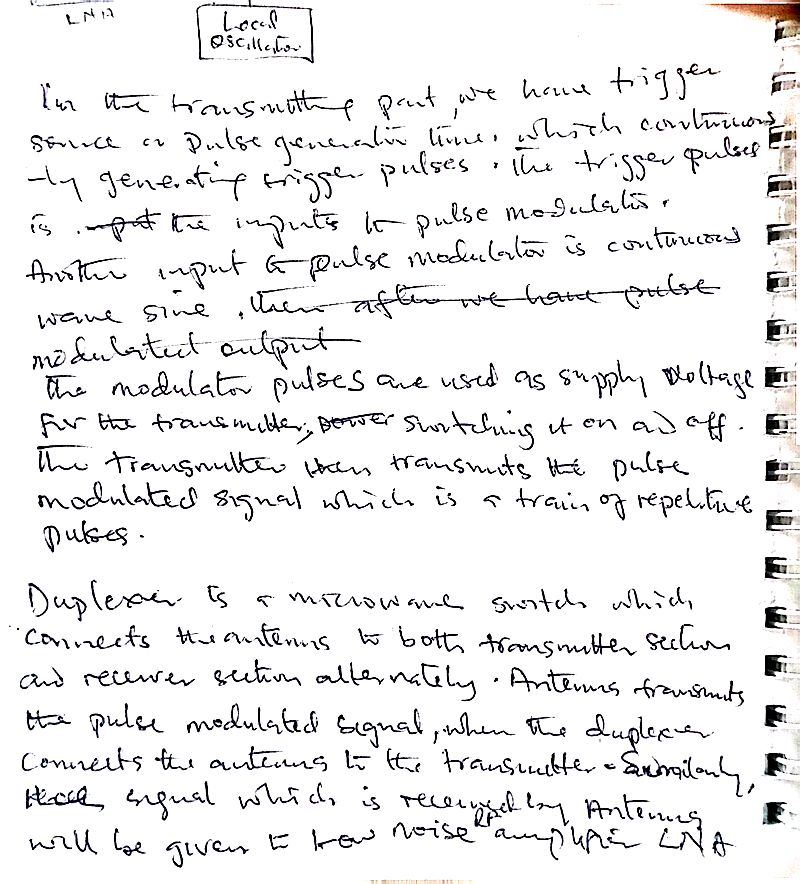 LNA
Local
Oscillator
In the transmitting part, we have trigger
source or pulse generator time, which continuous
-ly generating trigger pulses. The trigger pulses
is input the inputs to pulse modulator.
Another input to pulse modulator is continuous
wave sine, then after we have pulse
modulated output
The modulator pulses are used as supply voltage
for the transmitter, power switching it on ad off.
The transmitter then transmits the pulse
modulated signal which is a train of repetitive
pulses.
Duplexer is a microwave switch which
connects the antenna to both transmitter section
and receiver section alternately. Antenna transmits
the pulse modulated signal, when the duplexer
connects the antenna to the transmitter. Similarly,
signal which is received by Antenna
will be given to low noise RF amplifier LNA